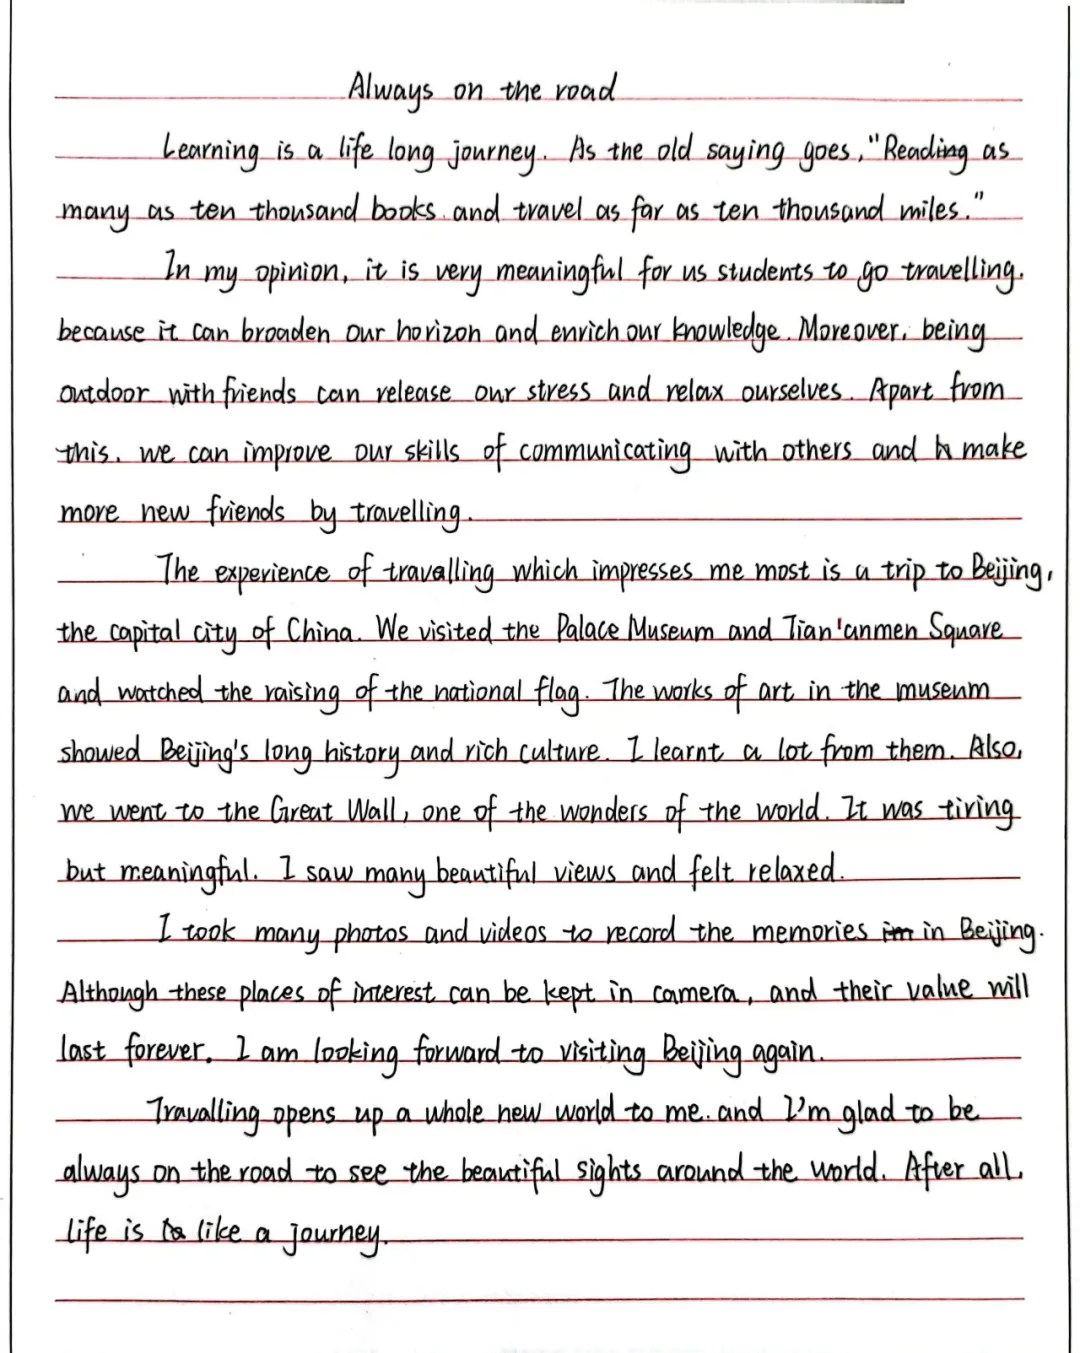 Always on the road
Learning is a life long journey. As the old saying goes, "Reading as
many as ten thousand books and travel as far as ten thousand miles."
In my opinion, it is very meaningful for us students to go travelling.
because it can broaden our horizon and enrich our knowledge. Moreover, being
outdoor with friends can release our stress and relax ourselves. Apart from
this, we can improve our skills of communicating with others and make
more new friends by travelling.
The experience of travalling which impresses me most is a trip to Beijing,
the capital city of China. We visited the Palace Museum and Tian'anmen Square
and watched the raising of the national flag. The works of art in the museum
showed Beijing's long history and rich culture. I learnt a lot from them. Also,
we went to the Great Wall, one of the wonders of the world. It was tiring
but meaningful. I saw many beautiful views and felt relaxed.
I took many photos and videos to record the memories in Beijing.
Although these places of interest can be kept in camera, and their value will
last forever. I am looking forward to visiting Beijing again.
Travalling opens up a whole new world to me. and I'm glad to be
always on the road to see the beautiful sights around the world. After all,
life is like a journey.